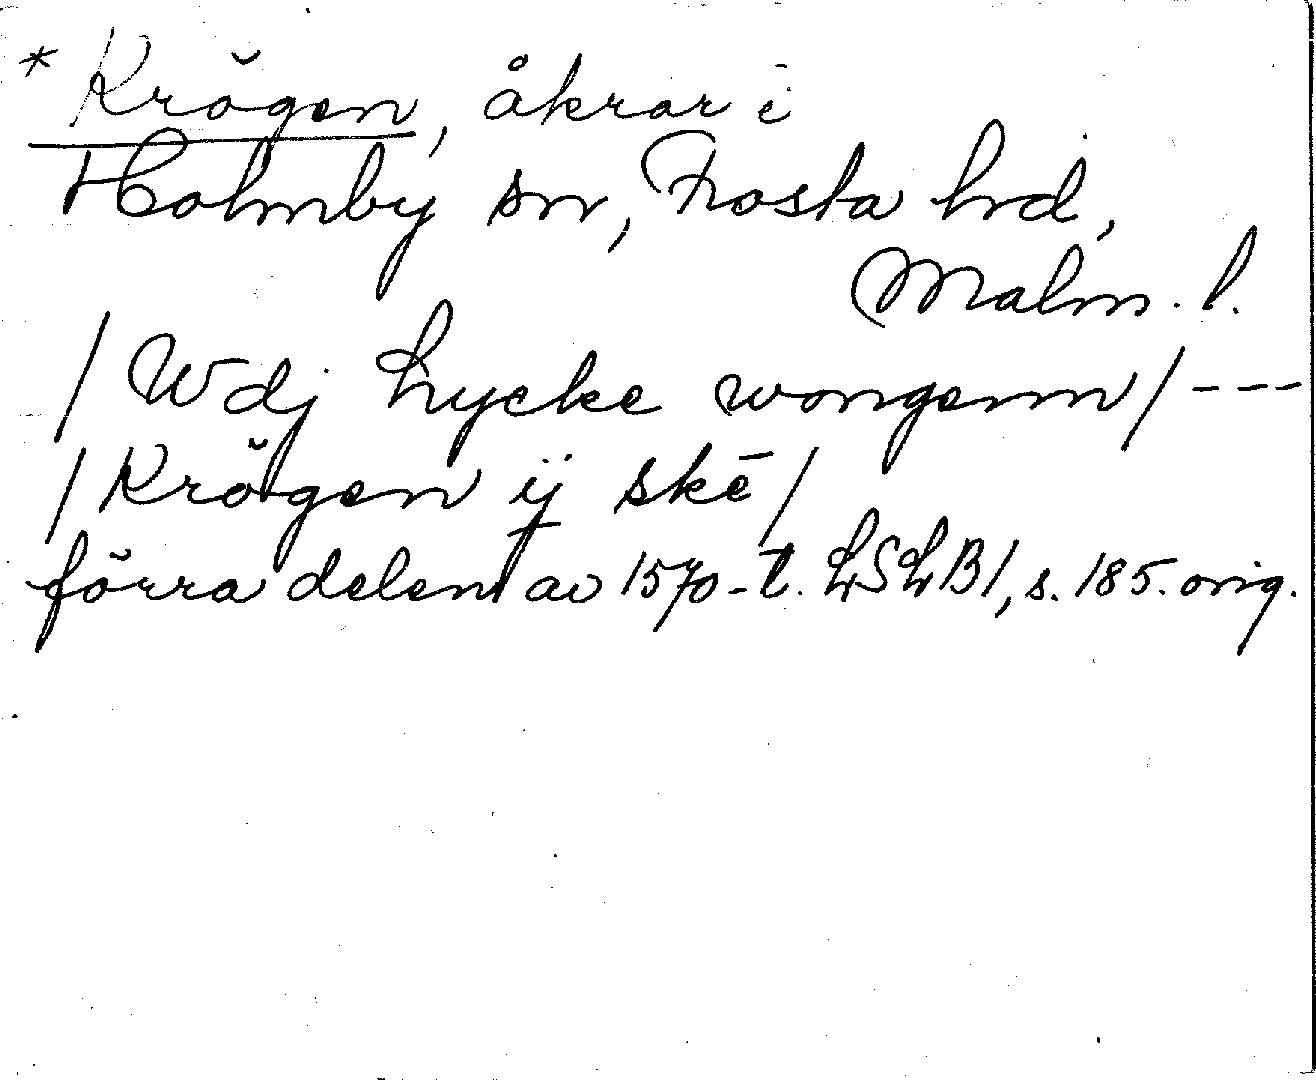 * Krögen, åkrar i
Holmby sn, Frosta hd,
Malm. l.
/ Wdj Lycke wongenn / ---
/ Krögen ij skē /
förra delen av 1570-t. LSLB1, s. 185. orig.